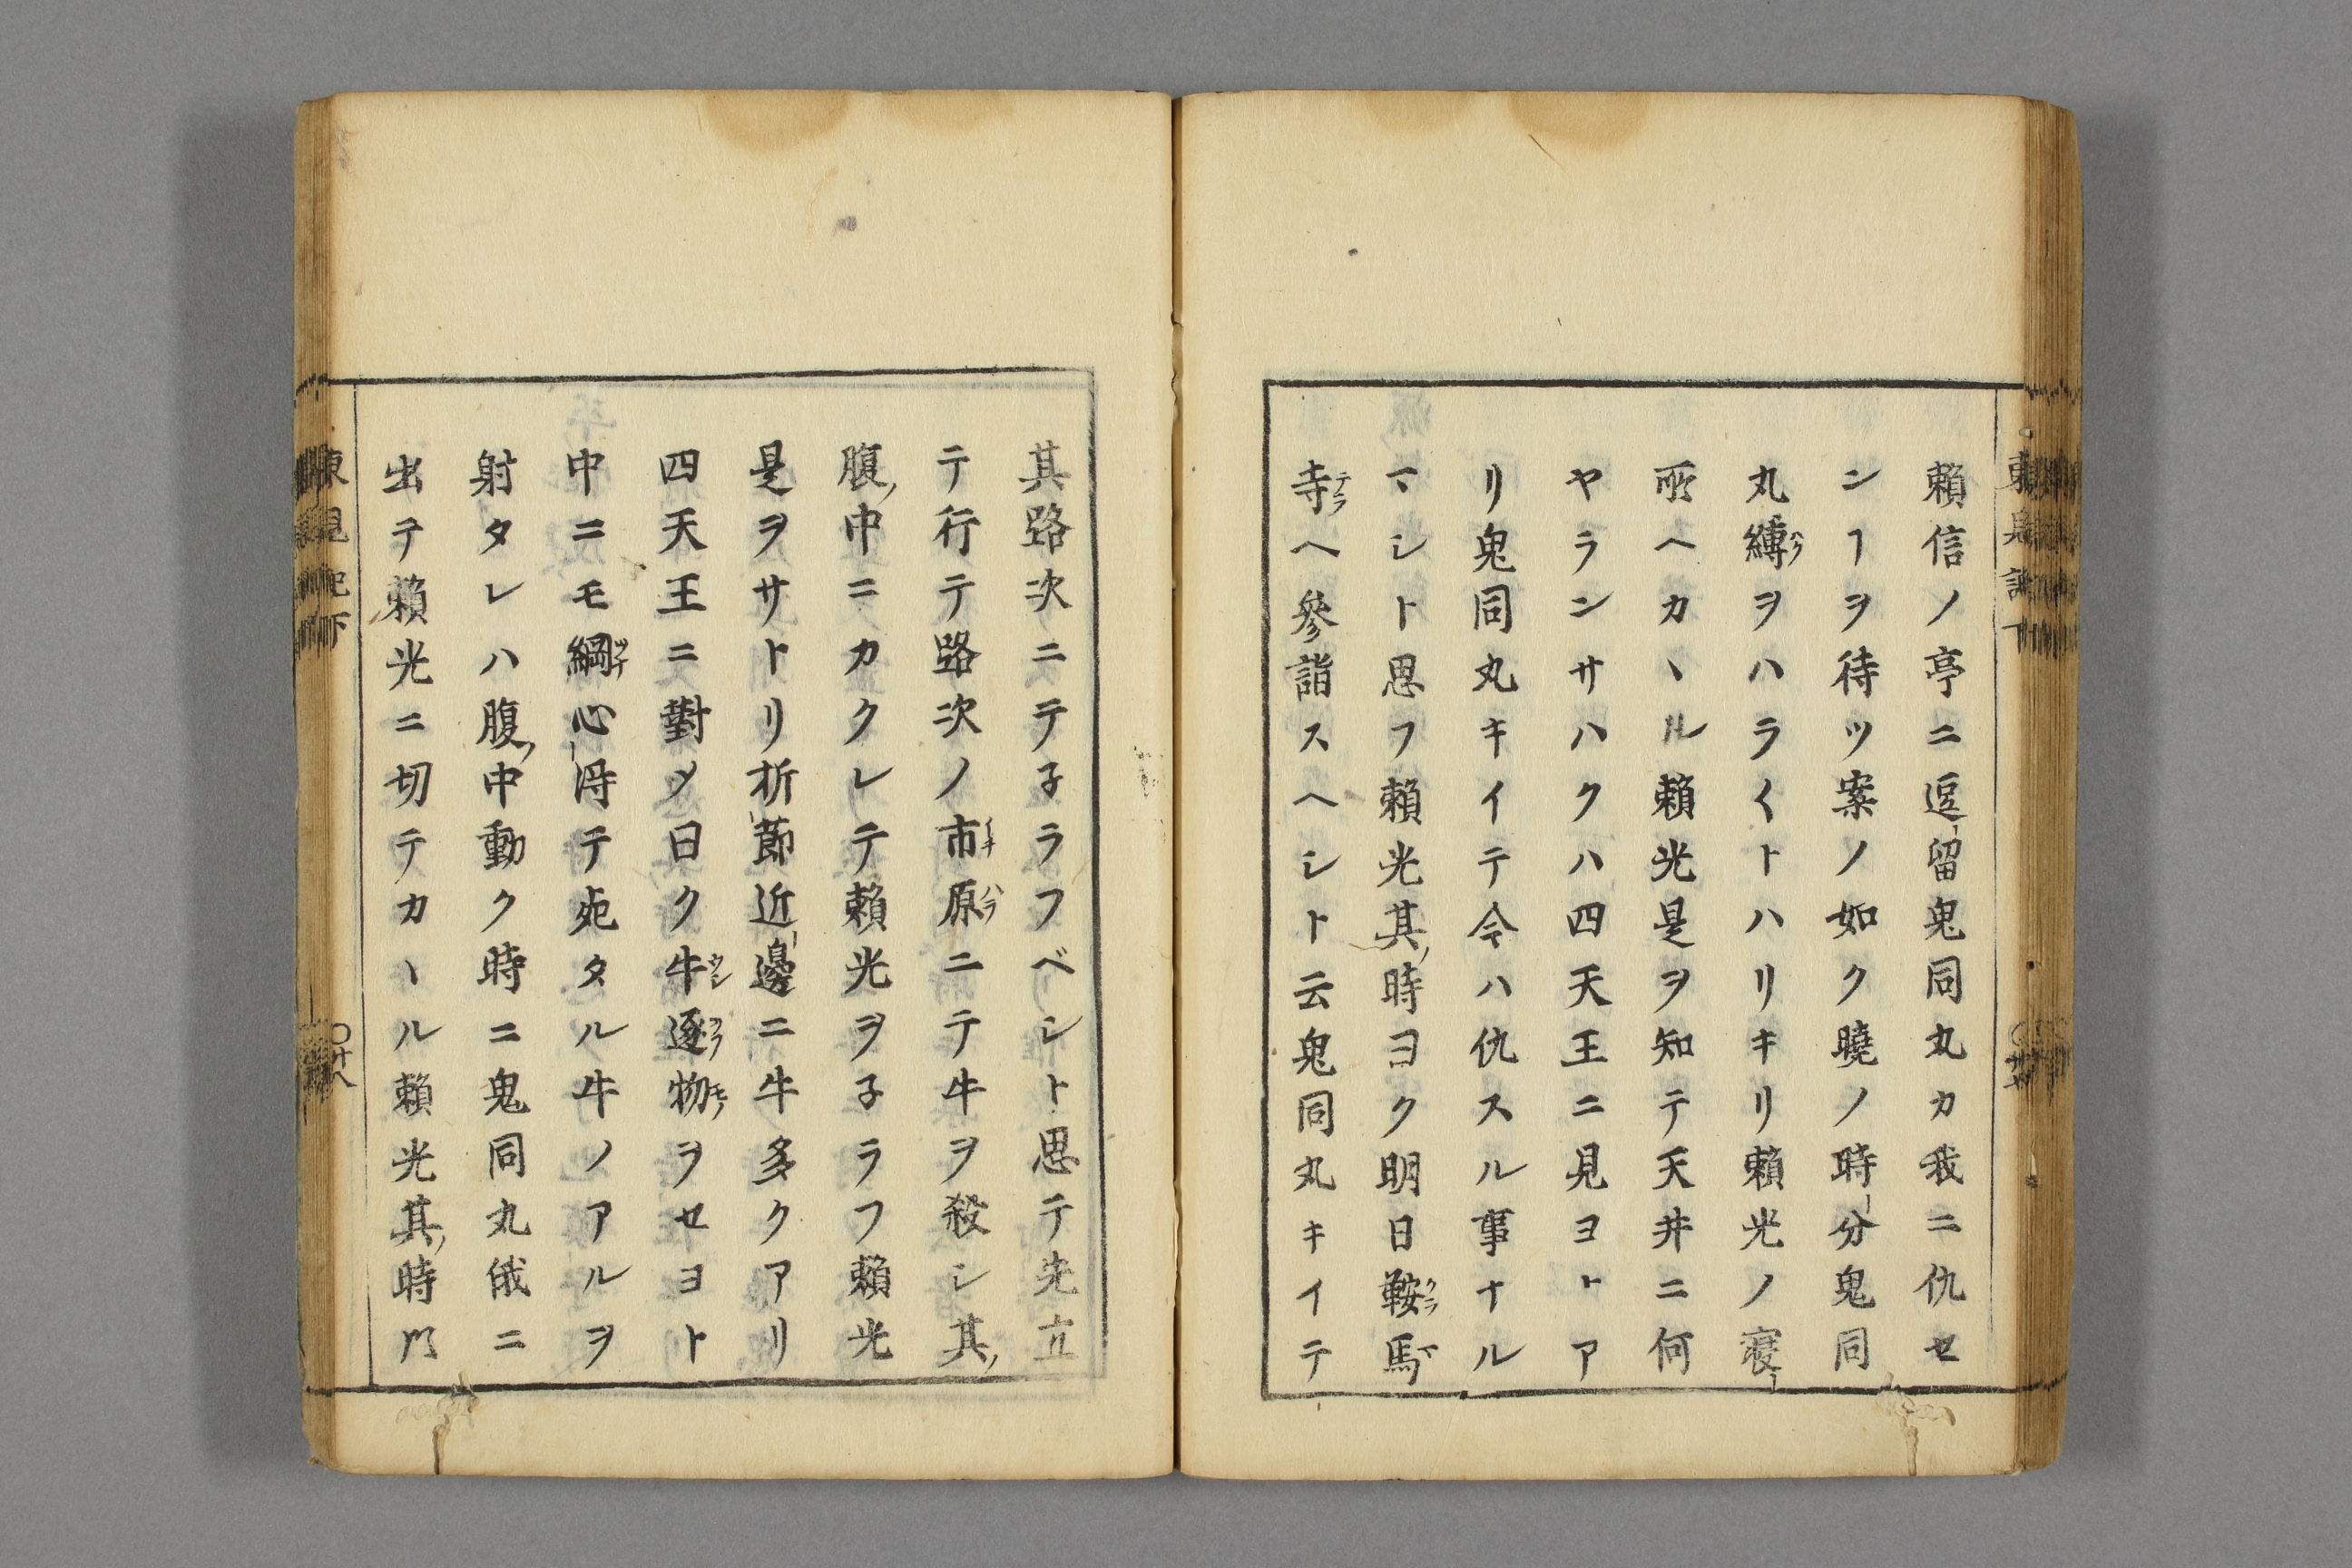 賴信ノ亭ニ逗留鬼同丸カ我ニ仇セ
ンヿヲ待ツ案ノ如ク曉ノ時分鬼同
丸縛ヲハラ〱トハリキリ賴光ノ寢
所ヘカヽル賴光是ヲ知テ天井ニ何
ヤランサハクハ四天王ニ見ヨトア
リ鬼同丸キイテ今ハ仇スル事ナル
マシト思フ賴光其時ヨク明日鞍馬
寺ヘ參詣スヘシト云鬼同丸キイテ
其路次ニテ子ラフベシト思テ先立
テ行テ路次ノ市原ニテ牛ヲ殺シ其
腹中ニカクレテ賴光ヲ子ラフ賴光
是ヲサトリ折節近邊ニ牛多クアリ
四天王ニ對メ曰ク牛逐物ヲセヨト
中ニモ綱心得テ死タル牛ノアルヲ
射タレハ腹中動ク時ニ鬼同丸俄ニ
出テ賴光ニ切テカヽル賴光其時爪
東見記下
〇廿八